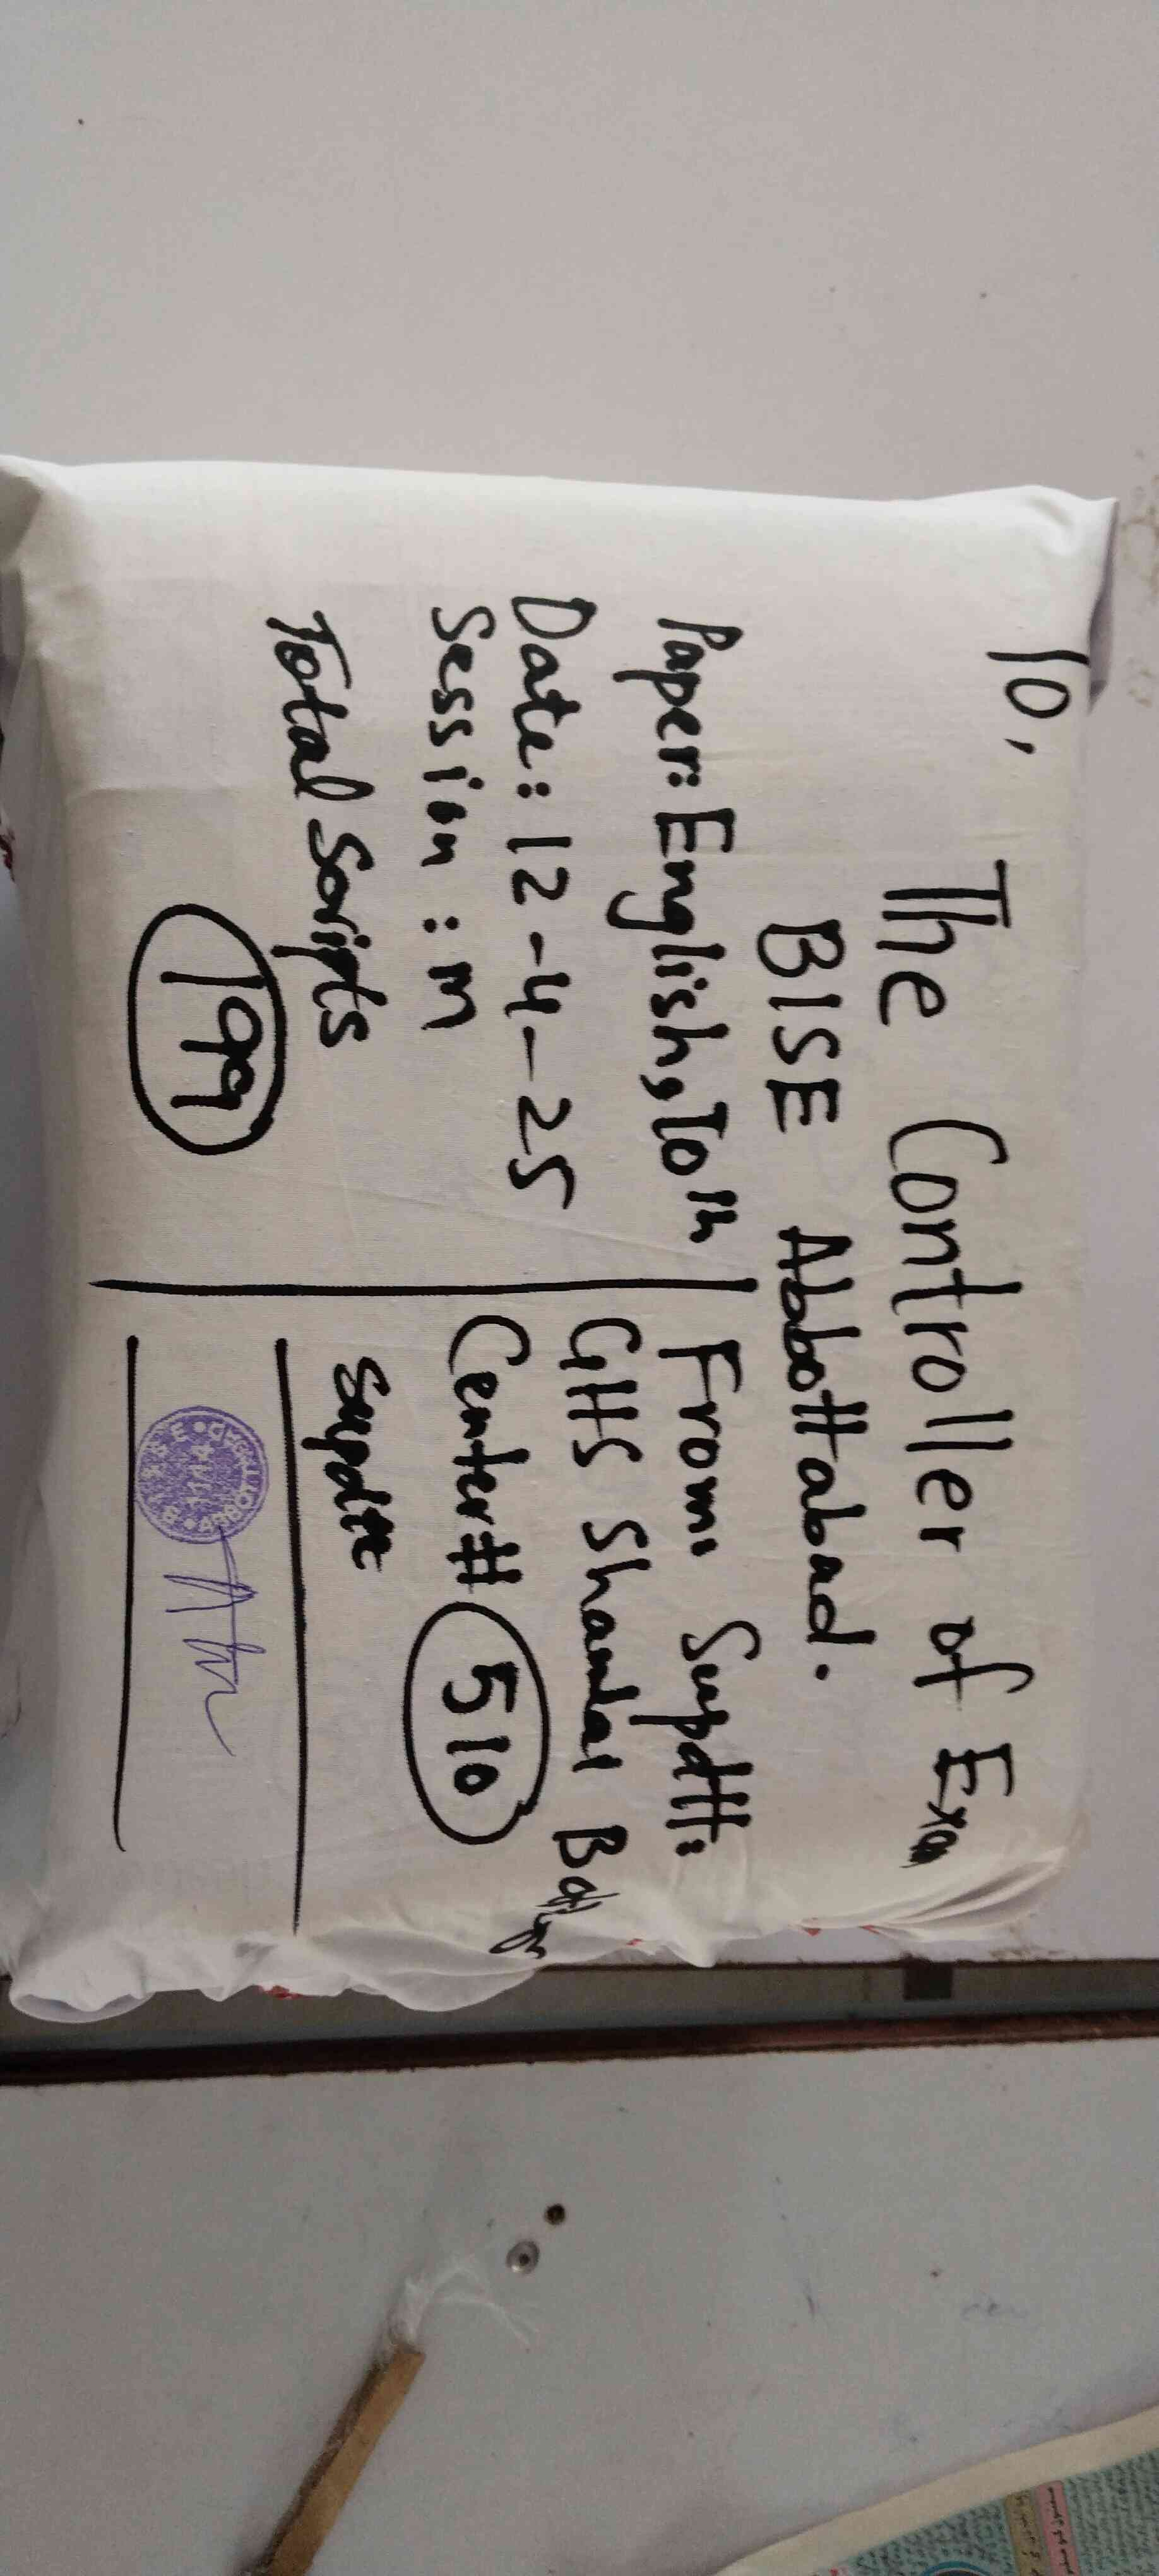 To,
The Controller of Exa
BISE Abbottabad.
Paper: English, 10th
Date: 12-4-25
Session: M
Total Scripts
199
From: Supdtt:
GHS Shamdai
Center# 510
Supdtt